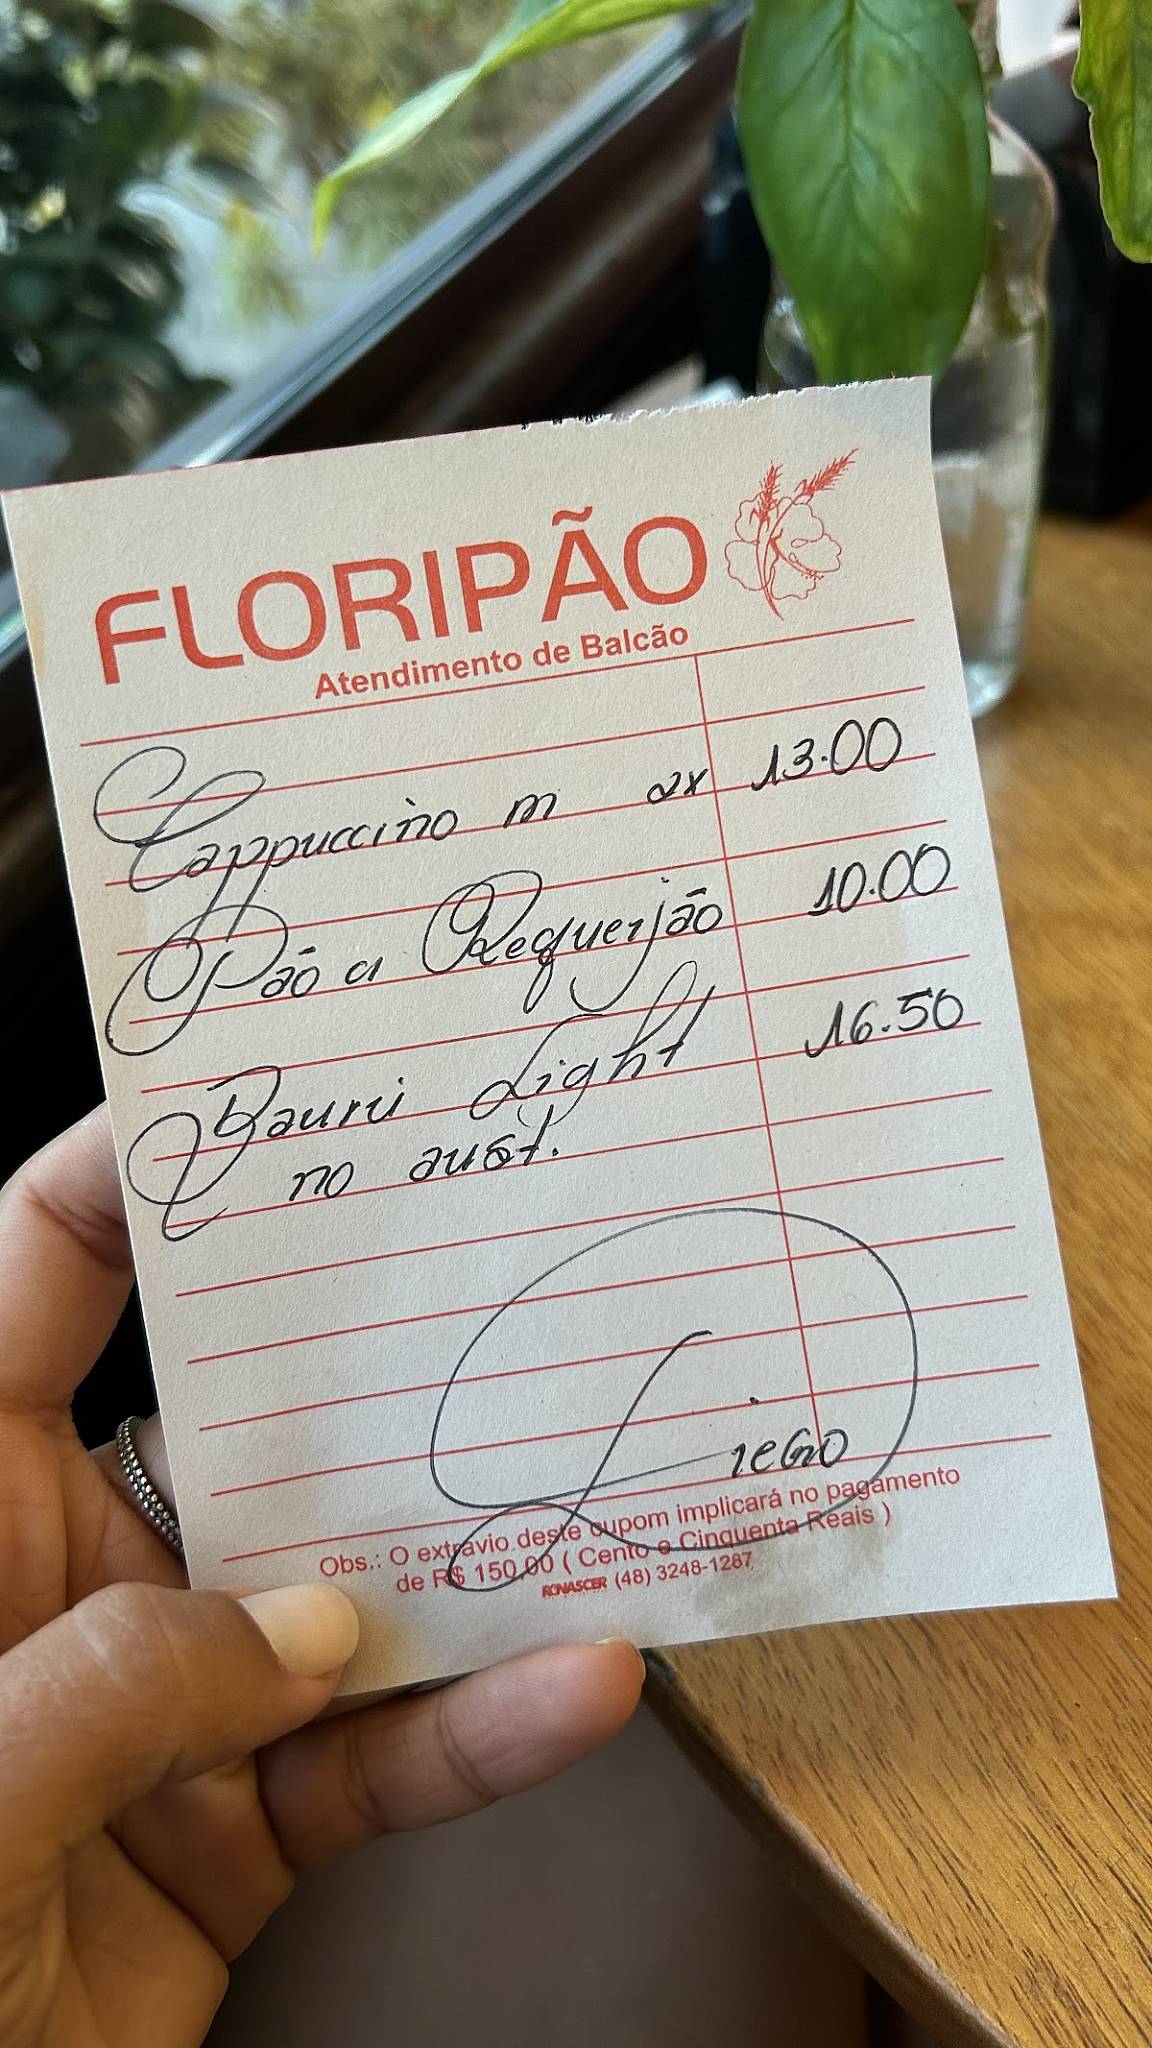 FLORIPÃO
Atendimento de Balcão
Cappuccino m 2x 13.00
Pão c/ Requeijão 10.00
Bauru Light 16.50
no aust.
Diego
Obs.: O extravio deste cupom implicará no pagamento
de R$ 150,00 ( Cento e Cinquenta Reais )
RONASCER (48) 3248-1287